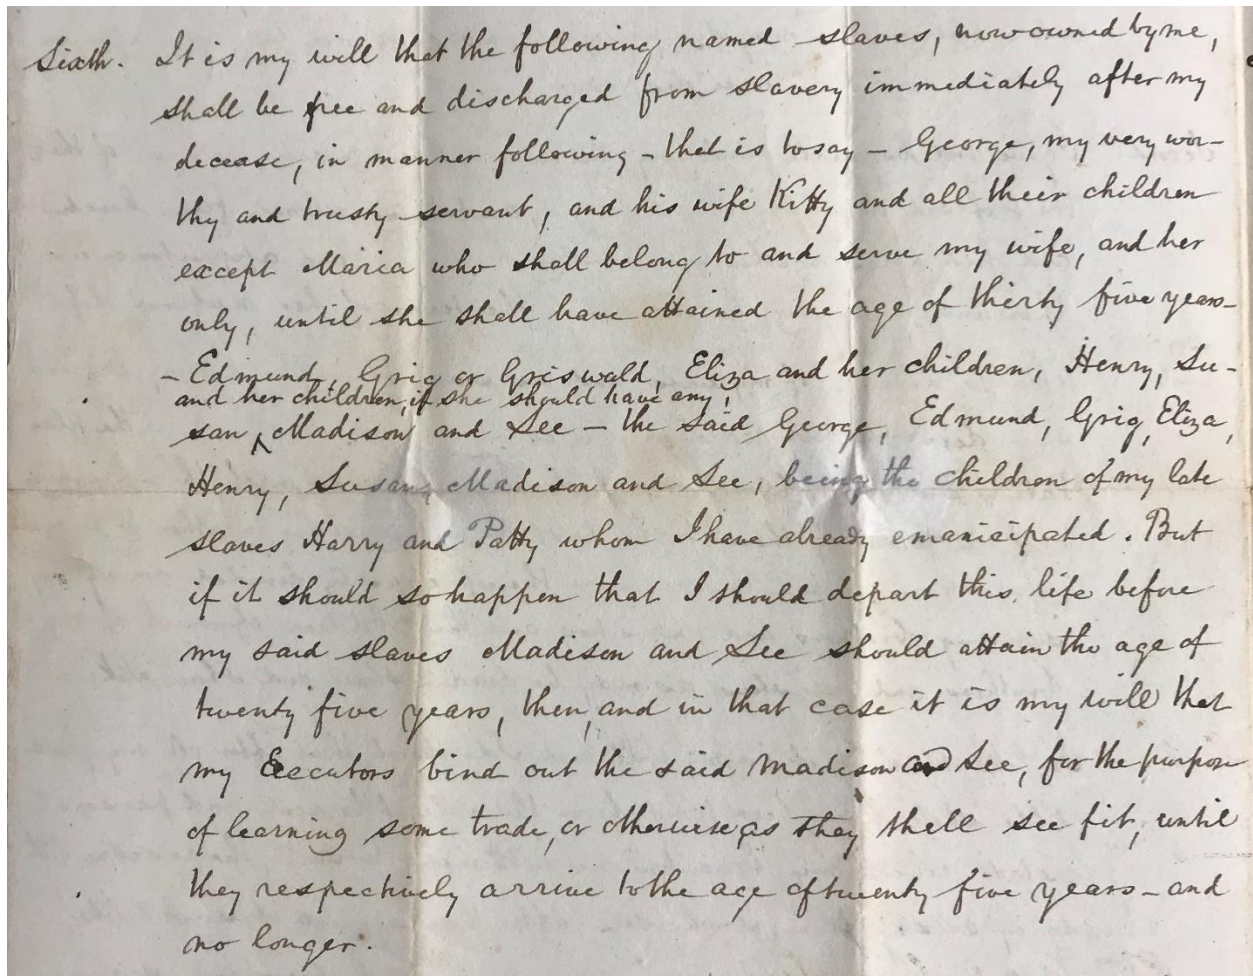 Sixth. It is my will that the following named slaves, now owned by me,
shall be free and discharged from slavery immediately after my
decease, in manner following - that is to say - George, my very wor-
thy and trusty servant, and his wife Kitty and all their children
except Maria who shall belong to and serve my wife, and her
only, until she shall have attained the age of thirty five years -
- Edmund, Grig or Griswald, Eliza and her children, Henry, Su-
and her children, if she should have any,
san ^ Madison and See - the said George, Edmund, Grig, Eliza,
Henry, Susan, Madison and See, being the children of my late
slaves Harry and Patty whom I have already emanicipated. But
if it should so happen that I should depart this life before
my said slaves Madison and See should attain the age of
twenty five years, then, and in that case it is my will that
my Executors bind out the said Madison and See, for the purpose
of learning some trade, or otherwise as they shall see fit, until
they respectively arrive to the age of twenty five years - and
no longer.